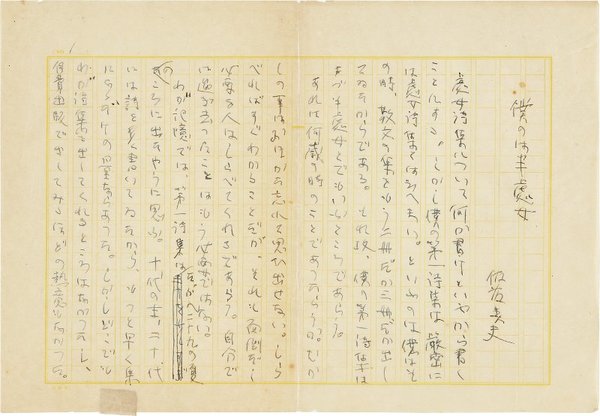 僕のは半處女
處女詩集について何か書けといふから書く
ことにする。しかし僕の第一詩集は嚴密に
は處女詩集とはいへない。といふのは僕はそ
の時、散文の集をもう二冊だか三冊だか出し
てゐたからである。それ故、僕の第一詩集は
まづ半處女とでもいふところであらう。
あれは何歳の時のことであつたらうか。むか
しの事はおほかた忘れて思ひ出せない。しら
べればすぐわかることだが、それも面倒だし
必要な人はしらべてくれるであらう。自分
に過ぎ去つたことはもう必要ではない。
わが記憶では、第一詩集は 二十九の頃
ころに出たやうに思ふ。十代の末、二十代
には詩を多く書いてゐたから、もつと早く集
にするだけの量もあつた。しかしどこでも
わが詩集を出してくれるところはなかつたし、
自費出版で出してみるほどの熱意もなかつた。